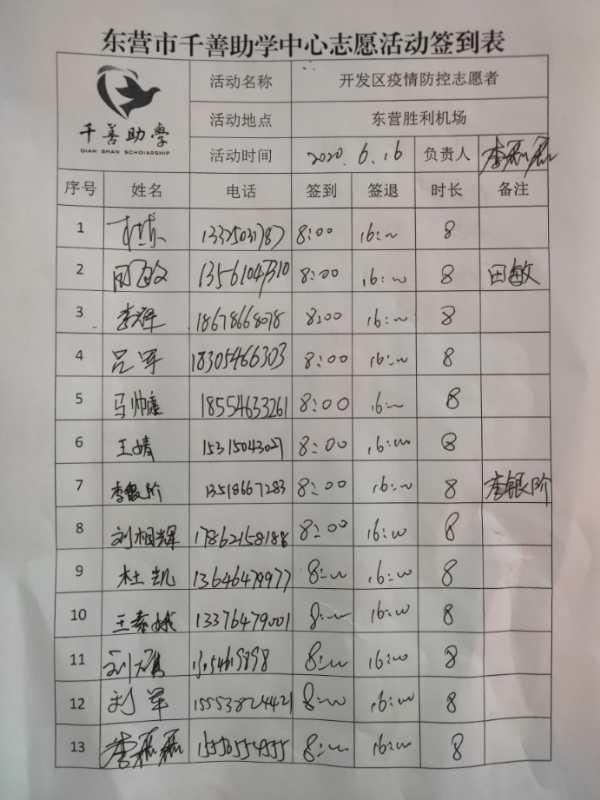 东营市千善助学中心志愿活动签到表
千善助学
QIAN SHAN SCHOLARSHIP
活动名称 开发区疫情防控志愿者
活动地点 东营胜利机场
活动时间 2020.6.16 负责人 李磊磊
序号 姓名 电话 签到 签退 时长 备注
1 13325031787 8:00 16:00 8
2 田敏 13561047310 8:00 16:00 8 田敏
3 李辉 18678668078 8:00 16:00 8
4 吕军 18305466303 8:00 16:00 8
5 马帅康 18554633261 8:00 16:00 8
6 王婧 15315043027 8:00 16:00 8
7 李银阶 13518667283 8:00 16:00 8 李银阶
8 刘相辉 17862158188 8:00 16:00 8
9 杜凯 13646479977 8:00 16:00 8
10 王春娥 13376479001 8:00 16:00 8
11 刘 8:00 16:00 8
12 刘军 15553824421 8:00 16:00 8
13 李磊磊 15550554555 8:00 16:00 8